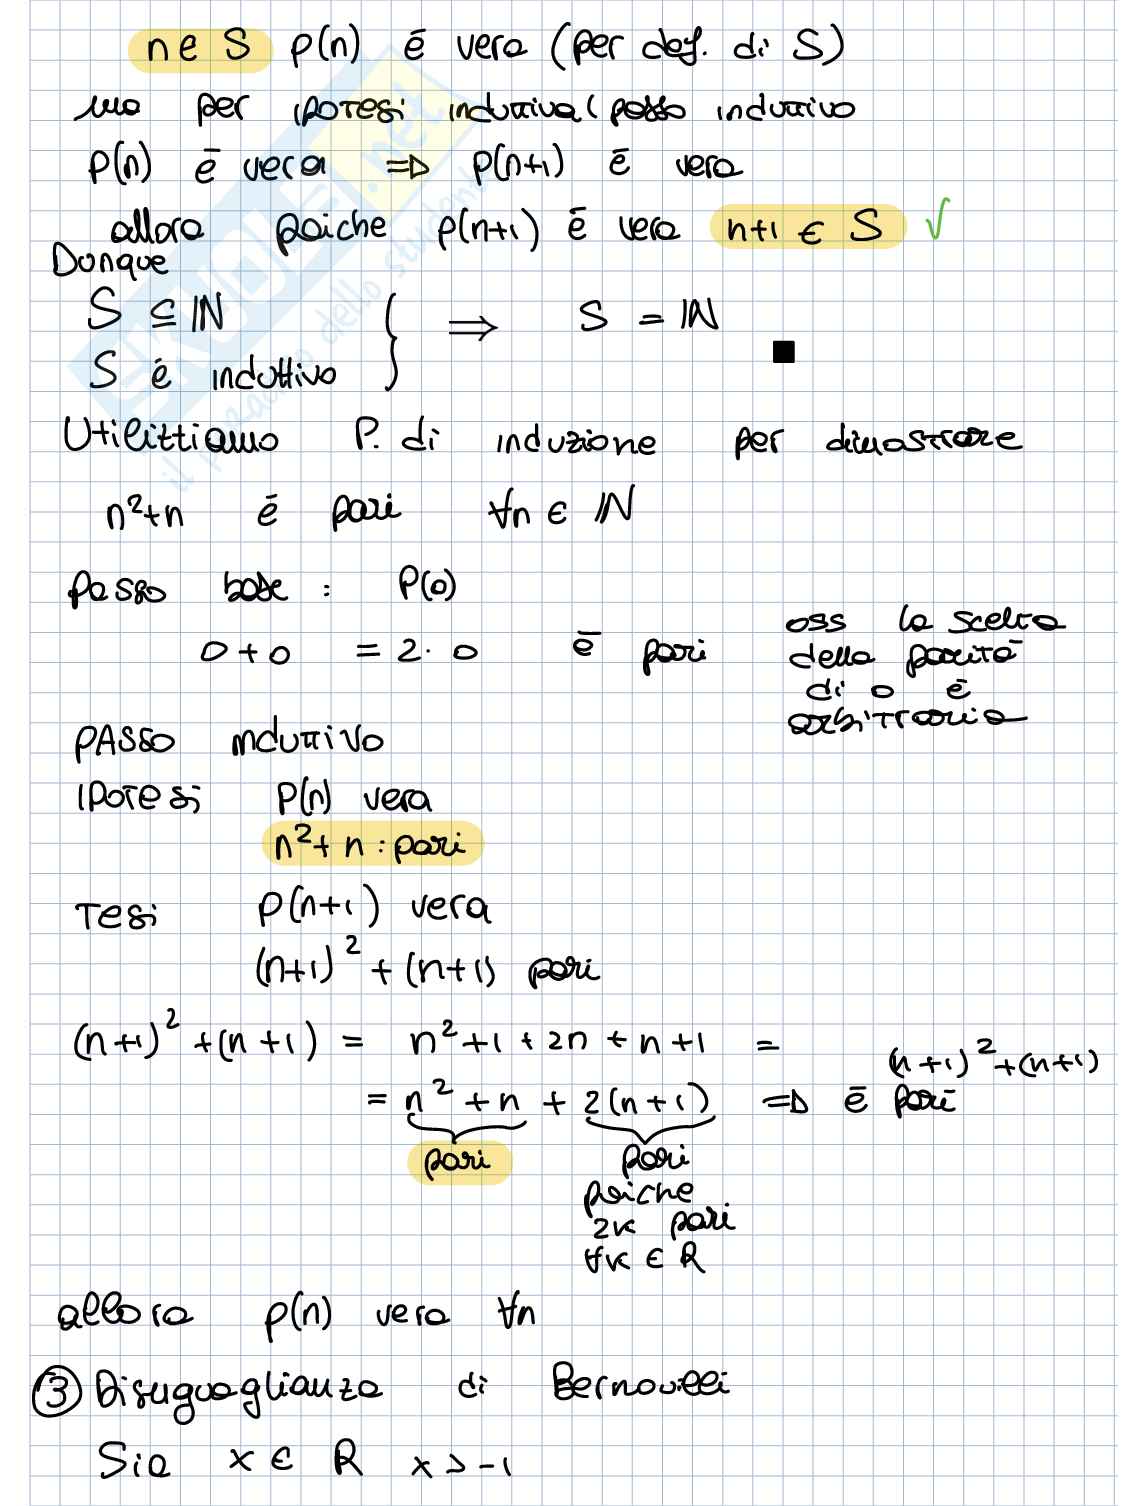 n ∈ S p(n) è vera (per def. di S)
ma per ipotesi induttiva ( passo induttivo
P(n) è vera ⇒ p(n+1) è vera
allora poiche p(n+1) è vera n+1 ∈ S √
Dunque
S ⊆ ℕ
S è induttivo } ⇒ S = ℕ ■
Utilittiamo P. di induzione per dimostrare
n²+n è pari ∀n ∈ ℕ
Passo base : P(0)
0+0 = 2·0 è pari
oss la scelta
della parità
di 0 è
arbitraria
PASSO induttivo
Ipotesi P(n) vera
n²+n : pari
Tesi P(n+1) vera
(n+1)² + (n+1) pari
(n+1)² + (n+1) = n²+1 + 2n + n+1 =
= n² + n + 2(n+1) ⇒ (n+1)²+(n+1) è pari
pari pari
poiche
2k pari
∀k ∈ R
allora p(n) vera ∀n
③ Disuguaglianza di Bernoulli
Sia x ∈ R x > -1
SKUOLA.net
il paradiso dello studente